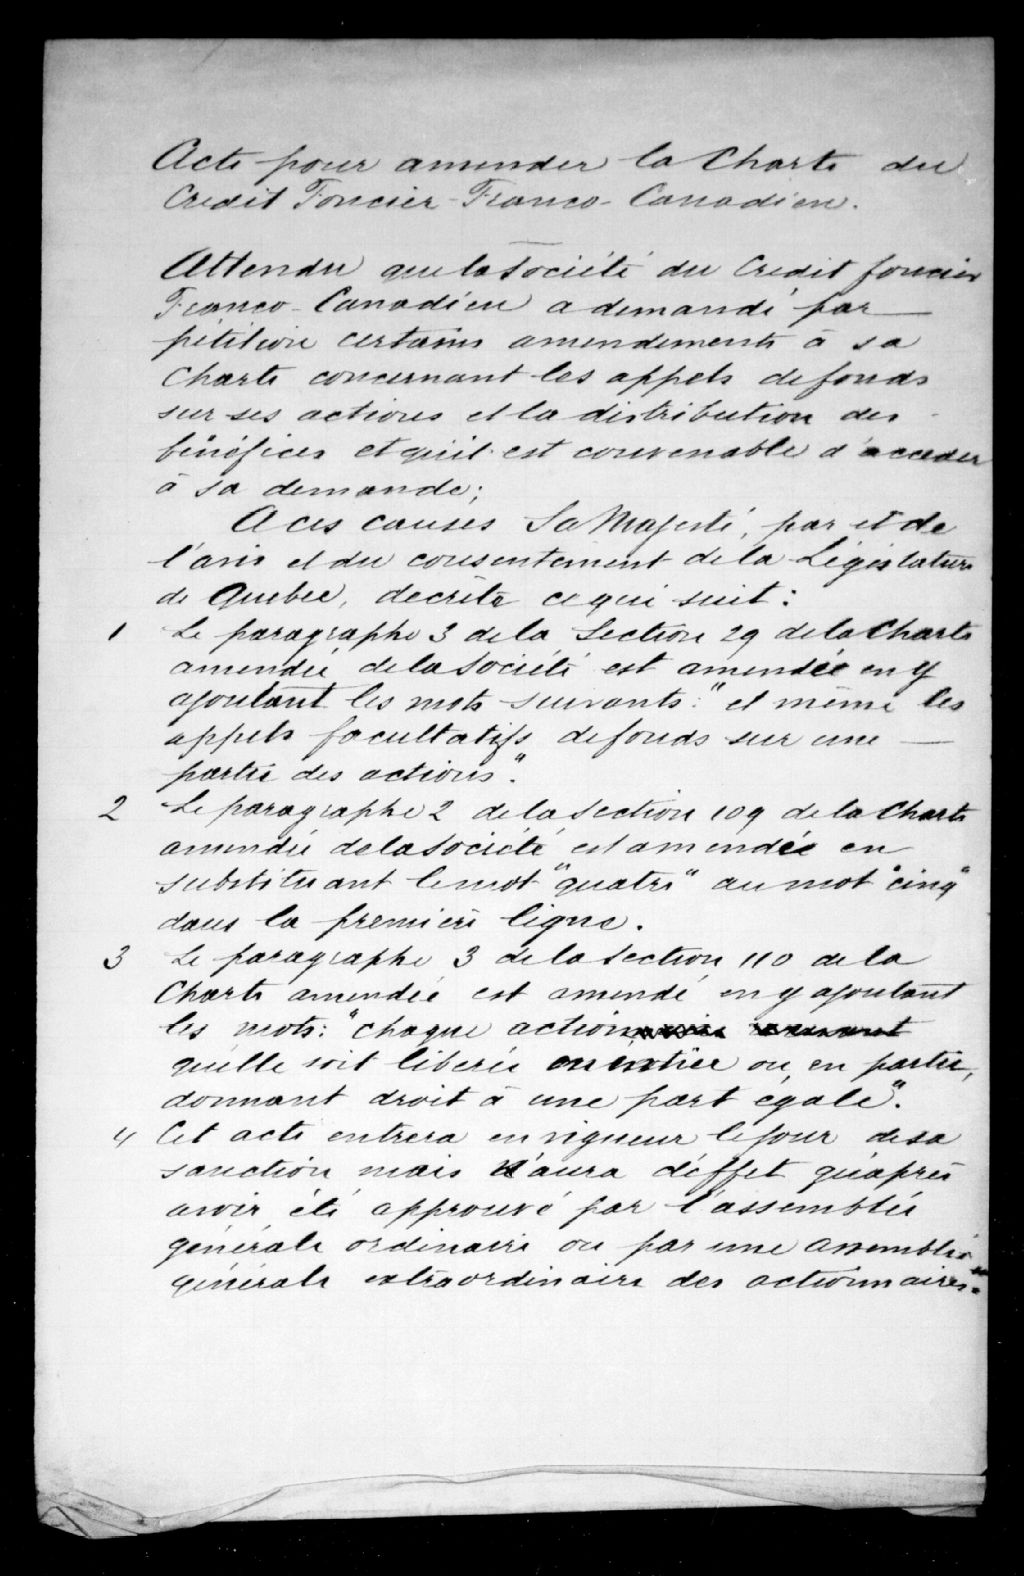 Acte pour amender la Charte du
Credit Foncier-Franco-Canadien.
Attendu que la Société du Credit foncier
Franco-Canadien a demandé par
pétition certains amendements à sa
Charte concernant les appels de fonds
sur ses actions et la distribution des
bénéfices et qu'il est convenable d'acceder
à sa demande;
A ces causes Sa Majesté, par et de
l'avis et du consentement de la Législature
de Quebec, décrète ce qui suit:
1 Le paragraphe 3 de la Section 29 de la Charte
amendée de la Société est amendée en y
ajoutant les mots suivants: "et même les
appels facultatifs de fonds sur une
partie des actions".
2 Le paragraphe 2 de la Section 109 de la Charte
amendée de la Société est amendée en
substituant le mot "quatre" au mot "cinq"
dans la première ligne.
3 Le paragraphe 3 de la Section 110 de la
Charte amendée est amendé en y ajoutant
les mots: "chaque action
qu'elle soit libérée en entier ou en partie,
donnant droit à une part égale".
4 Cet acte entrera en vigueur le jour de sa
sanction mais n'aura d'éffet qu'après
avoir été approuvé par l'assemblée
générale ordinaire ou par une assemblée
générale extraordinaire des actionnaires.